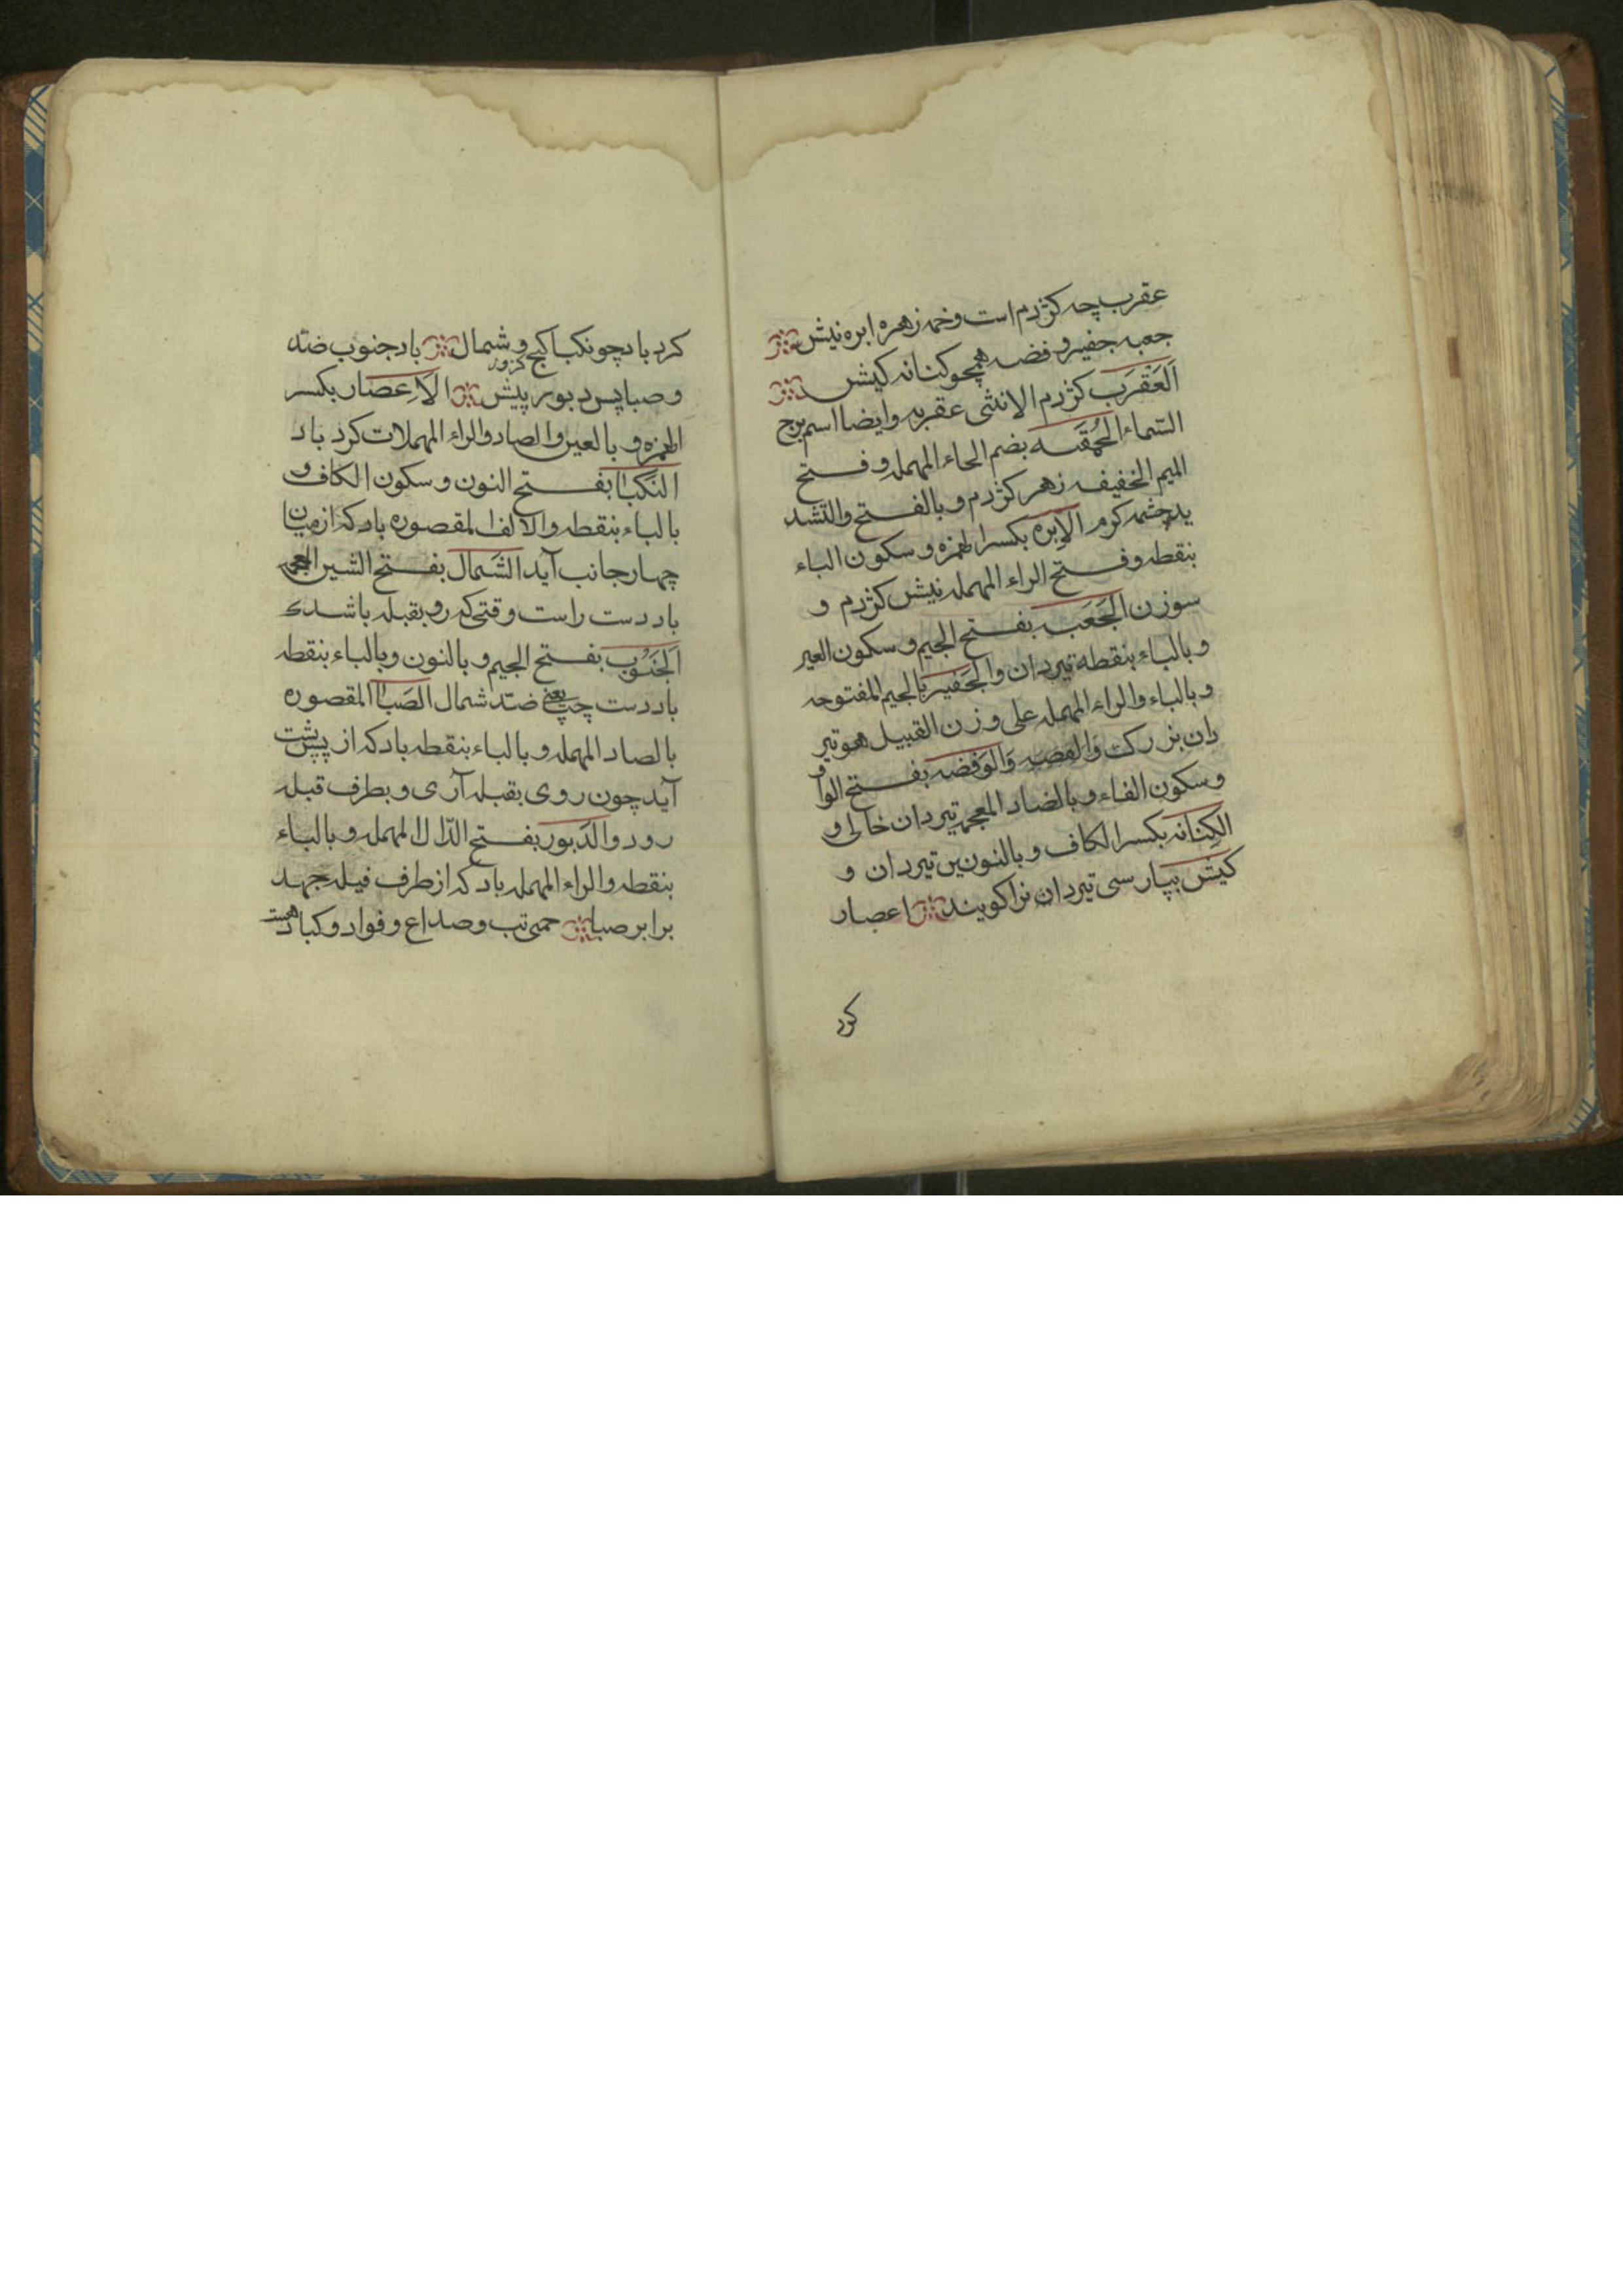 عقرب چه کژدم است وخمه زهره ابره نیش
جعبه جفیر وفضه همچو کنانه کیش
اَلعَقْرَب کژدم الانثی عقربه وایضا اسم برج
السماء الحُمَقَه بضم الحاء المهمله وفتح
المیم الخفیف زهر کژدم و بالفتح والتشد
ید چشمه کرم الاِبره بکسر الهمزه و سکون الباء
بنقطه وفتح الراء المهمله نیش کژدم و
سوزن الجَعَب بفتح الجیم و سکون العین
و بالباء بنقطه تیردان والجَفیر بالجیم المفتوحه
و بالباء والراء المهمله علی وزن القبیل هو تیر
دان بزرک والوَفضه بفتح الواو
وسکون الفاء و بالضاد المعجمه تیردان خالی و
الکِنانه بکسر الکاف و بالنونین تیردان و
کیش بپارسی تیردان نرا کویند اعصار
کرد
کرد باد چو نکبا کج و شمال باد جنوب ضد
وصبا پس دبور پیش الاَعِصَار بکسر
الهمزه و بالعین والصاد والراء المهملات کرد باد
النَکبا بفتح النون و سکون الکاف و
بالباء بنقطه والالف المقصوره باد که از میان
چهار جانب آید الشَمال بفتح الشین المعجمه
باد دست راست وقتی که رو بقبله باشد
اَلجَنُوب بفتح الجیم و بالنون و بالباء بنقطه
باد دست چپ یعنی ضد شمال الصَبا المقصوره
بالصاد المهمله و بالباء بنقطه باد که از پشت
آید چون روی بقبله آری و بطرف قبله
رود والدَبور بفتح الدّال المهمله و بالباء
بنقطه والراء المهمله باد که از طرف قبله جهد
برابر صبا حمی تب وصداع و فواد و کباد